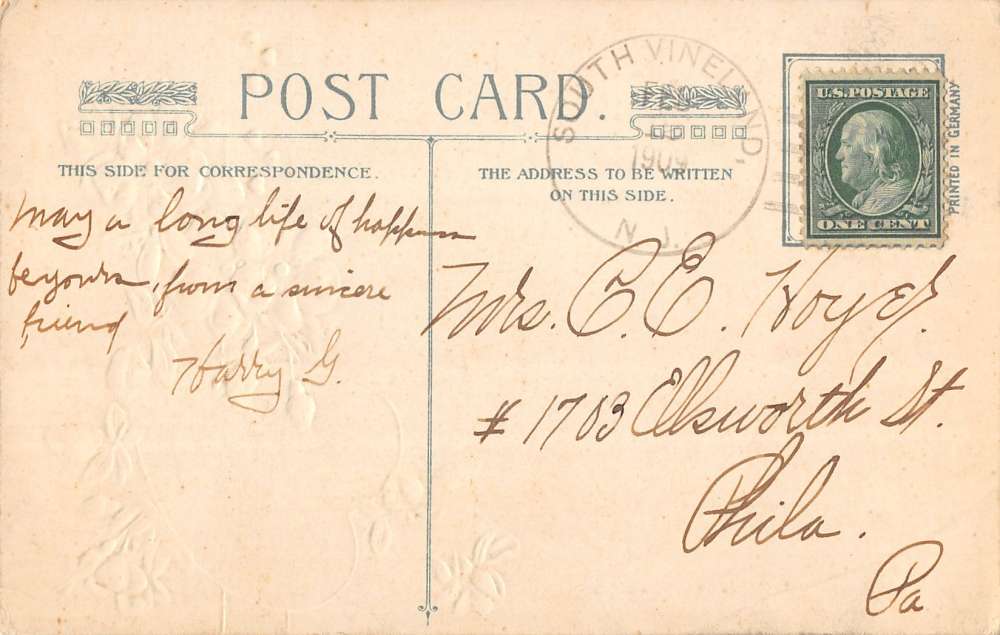 POST CARD.
SOUTH VINELAND,
1909
N. J.
U.S. POSTAGE
ONE CENT
PRINTED IN GERMANY
THIS SIDE FOR CORRESPONDENCE.
THE ADDRESS TO BE WRITTEN
ON THIS SIDE.
May a long life of happiness
be yours, from a sincere
friend
Harry G.
Mrs. C. E. Hoyer.
# 1703 Ellsworth St.
Phila.
Pa